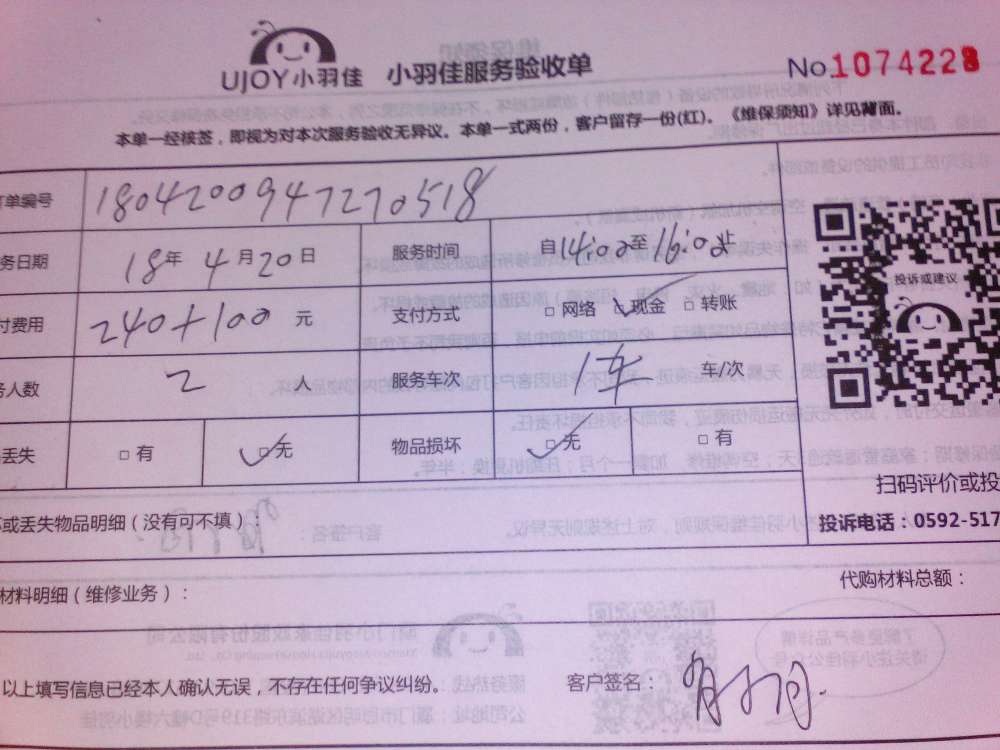 UJOY小羽佳 小羽佳服务验收单 No.1074228
本单一经核签，即视为对本次服务验收无异议。本单一式两份，客户留存一份(红)。《维保须知》详见背面。
订单编号 1804200947270518
务日期 18年4月20日 服务时间 自14:00至16:00止
付费用 240+100元 支付方式 □网络 ☑现金 □转账
务人数 2人 服务车次 1车 车/次
丢失 □有 ☑无 物品损坏 ☑无 □有
投诉或建议
扫码评价或投
投诉电话：0592-517
或丢失物品明细（没有可不填）：
材料明细（维修业务）： 代购材料总额：
以上填写信息已经本人确认无误，不存在任何争议纠纷。 客户签名：